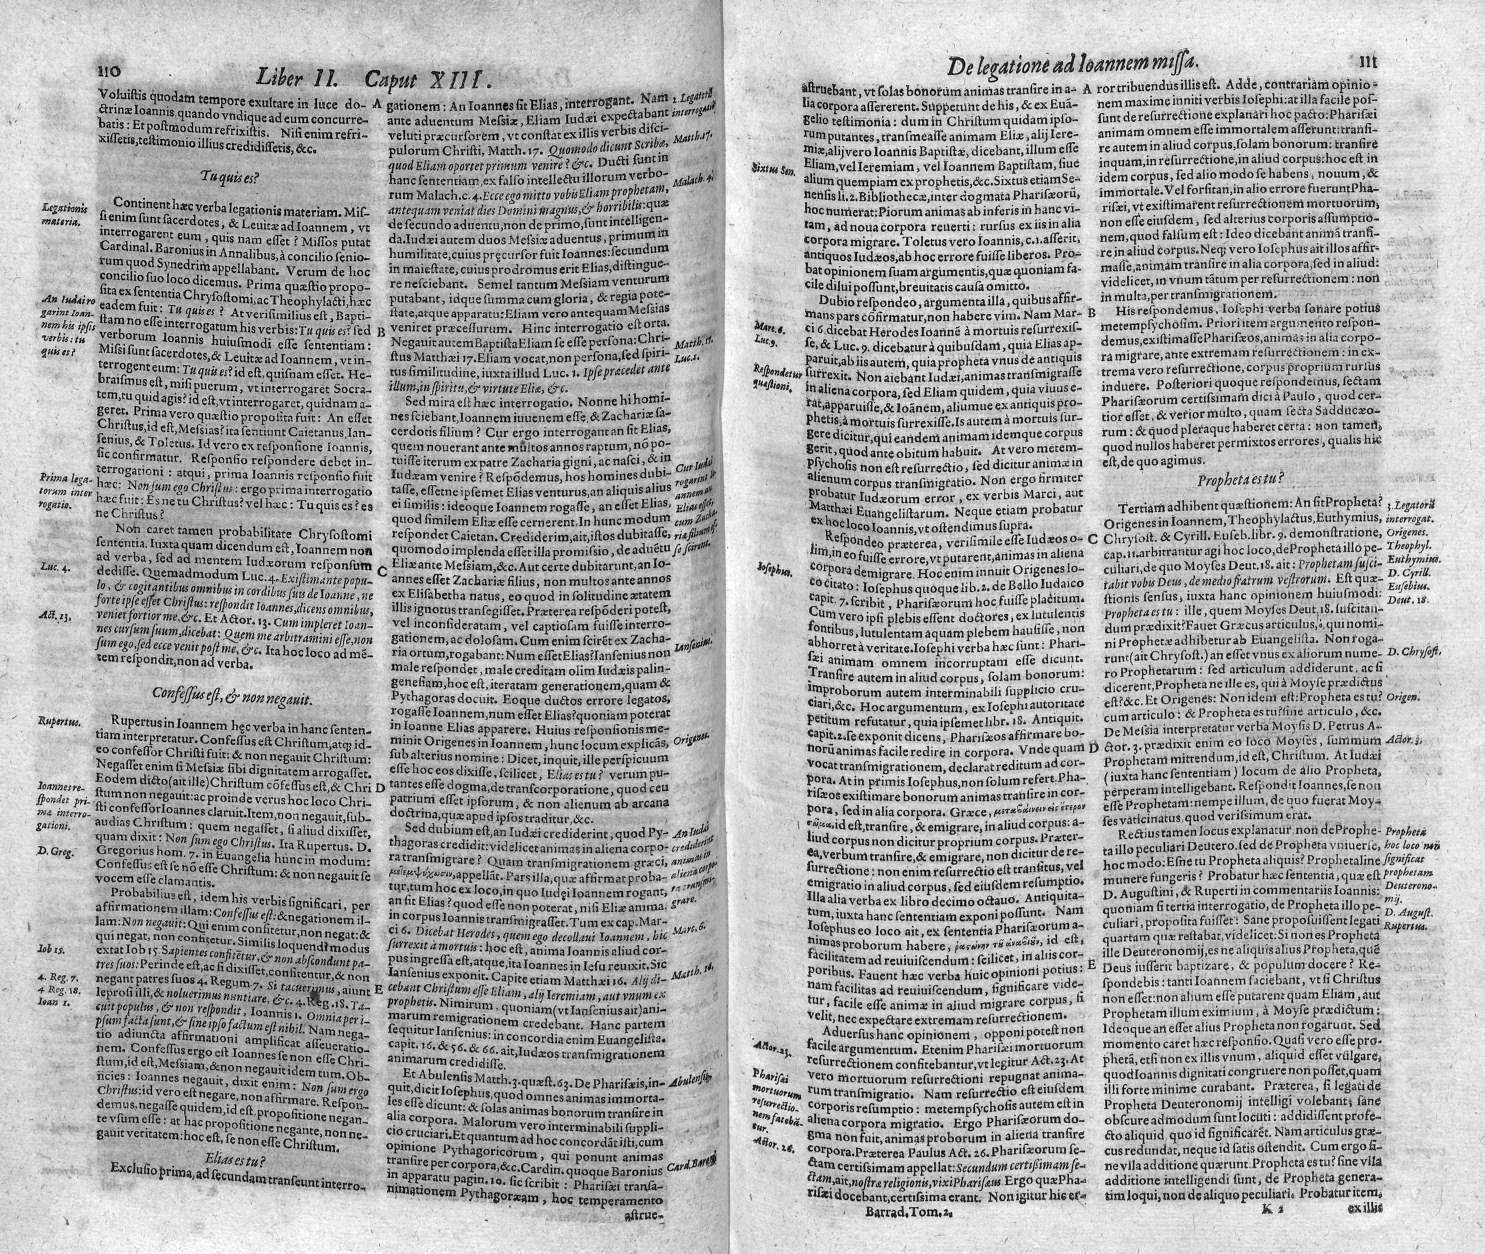 110
Liber II. Caput XIII.
Voluistis quodam tempore exultare in luce do-
ctrinæ Ioannis, quando vndique ad eum concurre-
batis: Et postmodum refrixistis. Nisi enim refri-
xissetis, testimonio illius credidissetis, &c.
Tu quis es?
Legationis
materia.
Continent hæc verba legationis materiam. Mis-
si enim sunt sacerdotes, & Leuitæ ad Ioannem, vt
interrogarent eum, quis nam esset? Missos putat
Cardinal. Baronius in Annalibus, à concilio senio-
rum quod Synedrim appellabant. Verum de hoc
concilio suo loco dicemus. Prima quæstio propo-
sita ex sententia Chrysostomi, ac Theophylacti, hæc
eadem fuit: Tu quis es? At verisimilius est, Bapti-
stam no esse interrogatum his verbis: Tu quis es? sed
verborum Ioannis huiusmodi esse sententiam:
Missi sunt sacerdotes, & Leuitæ ad Ioannem, vt in-
terrogent eum: Tu quis es? id est, quisnam esset. He-
braismus est, misi puerum, vt interrogaret Socra-
tem, tu quid agis? id est, vt interrogaret, quidnam a-
geret. Prima vero quæstio proposita fuit: An esset
Christus, id est, Messias? ita sentiunt Caietanus, Ian-
senius, & Toletus. Id vero ex responsione Ioannis,
sic confirmatur. Responsio respondere debet in-
terrogationi: atqui, prima Ioannis responsio fuit
hæc: Non sum ego Christus: ergo prima interrogatio
hæc fuit: Es ne tu Christus? vel hæc: Tu quis es? es
ne Christus?
An Iudæi ro
garint Ioan-
nem his ipsis
verbis: tu
quis es?
Prima lega-
torum inter
rogatio.
Non caret tamen probabilitate Chrysostomi
sententia. Iuxta quam dicendum est, Ioannem non
ad verba, sed ad mentem Iudæorum responsum
dedisse. Quemadmodum Luc. 4. Existimante popu-
lo, & cogitantibus omnibus in cordibus suis de Ioanne, ne
forte ipse esset Christus: respondit Ioannes, dicens omnibus,
veniet fortior me, &c. Et Actor. 13. Cum impleret Ioan-
nes cursum suum, dicebat: Quem me arbitramini esse, non
sum ego, sed ecce venit post me, &c. Ita hoc loco ad mē-
tem respondit, non ad verba.
Luc. 4.
Act. 13.
Confessus est, & non negauit.
Rupertus.
Rupertus in Ioannem hęc verba in hanc senten-
tiam interpretatur. Confessus est Christum, atq; id-
eo confessor Christi fuit: & non negauit Christum:
Negasset enim si Messiæ sibi dignitatem arrogasset.
Eodem dicto (ait ille) Christum cōfessus est, & Chri
stum non negauit: ac proinde verus hoc loco Chri-
sti confessor Ioannes claruit. Item, non negauit, sub-
audias Christum: quem negasset, si aliud dixisset,
quam dixit: Non sum ego Christus. Ita Rupertus. D.
Gregorius hom. 7. in Euangelia hunc in modum:
Confessus est se nō esse Christum: & non negauit se
vocem esse clamantis.
Ioannes re-
spondet pri-
ma interro-
gationi.
D. Greg.
Probabilius est, idem his verbis significari, per
affirmationem illam: Confessus est: & negationem il-
lam: Non negauit: Qui enim confitetur, non negat: &
qui negat, non confitetur. Similis loquendi modus
extat Iob 15. Sapientes confitētur, & non abscondunt pa-
tres suos: Perinde est, ac si dixisset, confitentur, & non
negant patres suos 4. Regum 7. Si tacuerimus, aiunt
leprosi illi, & noluerimus nuntiare, &c. 4. Reg. 18. Ta-
cuit populus, & non respondit, Ioannis 1. Omnia per i-
psum facta sunt, & sine ipso factum est nihil. Nam nega-
tio adiuncta affirmationi amplificat asseueratio-
nem. Confessus ergo est Ioannes se non esse Chri-
stum, id est, Messiam, & non negauit idem tum. Ob-
iicies: Ioannes negauit, dixit enim: Non sum ego
Christus: id vero est negare, non affirmare. Respon-
demus, negasse quidem, id est, propositione negan-
te vsum esse: at hac propositione negante, non ne-
gauit veritatem: hoc est, se non esse Christum.
Iob 15.
4. Reg. 7.
4 Reg. 18.
Ioan 1.
Elias es tu?
Exclusio prima, ad secundam transeunt interro-
A
B
C
D
E
gationem: An Ioannes sit Elias, interrogant. Nam
ante aduentum Messiæ, Eliam Iudæi expectabant
veluti præcursorem, vt constat ex illis verbis disci-
pulorum Christi, Matth. 17. Quomodo dicunt Scribæ,
quod Eliam oportet primum venire? &c. Ducti sunt in
hanc sententiam, ex falso intellectu illorum verbo-
rum Malach. c. 4. Ecce ego mitto vobis Eliam prophetam,
antequam veniat dies Domini magnus, & horribilis: quæ
de secundo aduentu, non de primo, sunt intelligen-
da. Iudæi autem duos Messiæ aduentus, primum in
humilitate, cuius pręcursor fuit Ioannes: secundum
in maiestate, cuius prodromus erit Elias, distingue-
re nesciebant. Semel tantum Messiam venturum
putabant, idque summa cum gloria, & regia pote-
state, atque apparatu: Eliam vero antequam Messias
veniret præcessurum. Hinc interrogatio est orta.
Negauit autem Baptista Eliam se esse persona: Chri-
stus Matthæi 17. Eliam vocat, non persona, sed spiri-
tus similitudine, iuxta illud Luc. 1. Ipse præcedet ante
illum, in spiritu, & virtute Eliæ, &c.
2. Legatorū
interrogatio
Matth. 17.
Malach. 4.
Matth. 17.
Luc. 1.
Sed mira est hæc interrogatio. Nonne hi homi-
nes sciebant, Ioannem iuuenem esse, & Zachariæ sa-
cerdotis filium? Cur ergo interrogant an sit Elias,
quem nouerant ante multos annos raptum, nō po-
tuisse iterum ex patre Zacharia gigni, ac nasci, & in
Iudæam venire? Respōdemus, hos homines dubi-
tasse, essetne ipsemet Elias venturus, an aliquis alius
ei similis: ideoque Ioannem rogasse, an esset Elias,
quod similem Eliæ esse cernerent. In hunc modum
respondet Caietan. Crediderim, ait, istos dubitasse,
quomodo implenda esset illa promissio, de aduētu
Eliæ ante Messiam, &c. Aut certe dubitarunt, an Io-
annes esset Zachariæ filius, non multos ante annos
ex Elisabetha natus, eo quod in solitudine ætatem
illis ignotus transegisset. Præterea respōderi potest,
vel inconsideratam, vel captiosam fuisse interro-
gationem, ac dolosam. Cum enim scirēt ex Zacha-
ria ortum, rogabant: Num esset Elias? Iansenius non
male respondet, male creditam olim Iudæis palin-
genesiam, hoc est, iteratam generationem, quam &
Pythagoras docuit. Eoque ductos errore legatos,
rogasse Ioannem, num esset Elias? quoniam poterat
in Ioanne Elias apparere. Huius responsionis me-
minit Origenes in Ioannem, hunc locum explicās,
sub alterius nomine: Dicet, inquit, ille perspicuum
esse hoc eos dixisse, scilicet, Elias es tu? verum pu-
tantes esse dogma, de transcorporatione, quod ceu
patrium esset ipsorum, & non alienum ab arcana
doctrina, quæ apud ipsos traditur, &c.
Cur Iudæi
Iansenius.
Origenes.
Sed dubium est, an Iudæi crediderint, quod Py-
thagoras credidit: videlicet animas in aliena corpo-
ra transmigrare? Quam transmigrationem græci,
μετεμψύχωσιν, appellāt. Pars illa, quæ affirmat proba-
tur, tum hoc ex loco, in quo Iudęi Ioannem rogant,
an sit Elias? quod esse non poterat, nisi Eliæ anima,
in corpus Ioannis transmigrasset. Tum ex cap. Mar-
ci 6. Dicebat Herodes, quem ego decollaui Ioannem, hic
surrexit à mortuis: hoc est, anima Ioannis aliud cor-
pus ingressa est, atque, ita Ioannes in Iesu reuixit. Sic
Iansenius exponit. Capite etiam Matthæi 16. Alij di-
cebant Christum esse Eliam, alij Ieremiam, aut vnum ex
prophetis. Nimirum, quoniam (vt Iansenius ait) ani-
marum remigrationem credebant. Hanc partem
sequitur Iansenius: in concordia enim Euangelista.
capit. 16. & 56. & 66. ait, Iudæos transmigrationem
animarum credidisse.
An Iudæi
crediderint
animas in
aliena corpo
ra transmi-
grare.
Marc. 6.
Matth. 16.
Et Abulensis Matth. 3. quæst. 63. De Pharisæis, in-
quit, dicit Iosephus, quod omnes animas immorta-
les esse dicunt: & solas animas bonorum transire in
alia corpora. Malorum vero interminabili suppli-
cio cruciari. Et quantum ad hoc concordāt isti, cum
opinione Pythagoricorum, qui ponunt animas
transire per corpora, &c. Cardin. quoque Baronius
in apparatu pagin. 10. sic scribit: Pharisæi transa-
nimationem Pythagoræam, hoc temperamento
astrue-
Abulensis.
Card. Baron.
De legatione ad Ioannem missa.
111
astruebant, vt solas bonorum animas transire in a-
lia corpora assererent. Suppetunt de his, & ex Euā-
gelio testimonia: dum in Christum quidam ipso-
rum putantes, transmeasse animam Eliæ, alij Iere-
miæ, alij vero Ioannis Baptistæ, dicebant, illum esse
Eliam, vel Ieremiam, vel Ioannem Baptistam, siue
alium quempiam ex prophetis, &c. Sixtus etiam Se-
nensis li. 2. Bibliothecæ, inter dogmata Pharisæorū,
hoc numerat: Piorum animas ab inferis in hanc vi-
tam, ad noua corpora reuerti: rursus ex iis in alia
corpora migrare. Toletus vero Ioannis, c. 1. asserit,
antiquos Iudæos, ab hoc errore fuisse liberos. Pro-
bat opinionem suam argumentis, quæ quoniam fa-
cile dilui possunt, breuitatis causa omitto.
Sixtus Sen.
Dubio respondeo, argumenta illa, quibus affir-
mans pars cōfirmatur, non habere vim. Nam Mar-
ci 6. dicebat Herodes Ioannē à mortuis resurrexis-
se, & Luc. 9. dicebatur à quibusdam, quia Elias ap-
paruit, ab iis autem, quia propheta vnus de antiquis
surrexit. Non aiebant Iudæi, animas transmigrasse
in aliena corpora, sed Eliam quidem, quia viuus e-
rat, apparuisse, & Ioānem, aliumue ex antiquis pro-
phetis, à mortuis surrexisse. Is autem à mortuis sur-
gere dicitur, qui eandem animam idemque corpus
gerit, quod ante obitum habuit. At vero metem-
psychosis non est resurrectio, sed dicitur animæ in
alienum corpus transmigratio. Non ergo firmiter
probatur Iudæorum error, ex verbis Marci, aut
Matthæi Euangelistarum. Neque etiam probatur
ex hoc loco Ioannis, vt ostendimus supra.
Marc. 6.
Luc. 9.
Respondetur
quæstioni.
Respondeo præterea, verisimile esse Iudæos o-
lim, in eo fuisse errore, vt putarent, animas in aliena
corpora demigrare. Hoc enim innuit Origenes lo-
co citato: Iosephus quoque lib. 2. de Bello Iudaico
capit. 7. scribit, Pharisæorum hoc fuisse placitum.
Cum vero ipsi plebis essent doctores, ex lutulentis
fontibus, lutulentam aquam plebem hausisse, non
abhorret à veritate. Iosephi verba hæc sunt: Phari-
sæi animam omnem incorruptam esse dicunt.
Transire autem in aliud corpus, solam bonorum:
improborum autem interminabili supplicio cru-
ciari, &c. Hoc argumentum, ex Iosephi autoritate
petitum refutatur, quia ipsemet libr. 18. Antiquit.
capit. 2. se exponit dicens, Pharisæos affirmare bo-
norū animas facile redire in corpora. Vnde quam
vocat transmigrationem, declarat reditum ad cor-
pora. At in primis Iosephus, non solum refert Pha-
risæos existimare bonorum animas transire in cor-
pora, sed in alia corpora. Græce, μεταβαίνειν εἰς ἕτερον
σῶμα, id est, transire, & emigrare, in aliud corpus: a-
liud corpus non dicitur proprium corpus. Præter-
ea, verbum transire, & emigrare, non dicitur de re-
surrectione: non enim resurrectio est transitus, vel
emigratio in aliud corpus, sed eiusdem resumptio.
Illa alia verba ex libro decimo octauo. Antiquita-
tum, iuxta hanc sententiam exponi possunt. Nam
Iosephus eo loco ait, ex sententia Pharisæorum a-
nimas proborum habere, ῥᾳστώνην τοῦ ἀναβιοῦν, id est,
facilitatem ad reuiuiscendum: scilicet, in aliis cor-
poribus. Fauent hæc verba huic opinioni potius:
nam facilitas ad reuiuiscendum, significare vide-
tur, facile esse animæ in aliud migrare corpus, si
velit, nec expectare extremam resurrectionem.
Iosephus.
Aduersus hanc opinionem, opponi potest non
facile argumentum. Etenim Pharisæi mortuorum
resurrectionem confitebantur, vt legitur Act. 23. At
vero mortuorum resurrectioni repugnat anima-
rum transmigratio. Nam resurrectio est eiusdem
corporis resumptio: metempsychosis autem est in
aliena corpora migratio. Ergo Pharisæorum do-
gma non fuit, animas proborum in aliena transire
corpora. Præterea Paulus Act. 26. Pharisæorum se-
ctam certissimam appellat: Secundum certissimam se-
ctam, ait, nostræ religionis, vixi Pharisæus Ergo quæ Pha-
risæi docebant, certissima erant. Non igitur hic er-
Actor. 23.
Pharisæi
mortuorum
resurrectio-
nem fatebā-
tur.
Actor. 26.
Barrad. Tom. 2.
A
B
C
D
E
ror tribuendus illis est. Adde, contrariam opinio-
nem maxime inniti verbis Iosephi: at illa facile pos-
sunt de resurrectione explanari hoc pacto: Pharisæi
animam omnem esse immortalem asserunt: transi-
re autem in aliud corpus, solam bonorum: transire
inquam, in resurrectione, in aliud corpus: hoc est in
idem corpus, sed alio modo se habens, nouum, &
immortale. Vel forsitan, in alio errore fuerunt Pha-
risæi, vt existimarent resurrectionem mortuorum,
non esse eiusdem, sed alterius corporis assumptio-
nem, quod falsum est: Ideo dicebant animā transi-
re, in aliud corpus. Neq; vero Iosephus ait illos affir-
masse, animam transire in alia corpora, sed in aliud:
videlicet, in vnum tātum per resurrectionem: non
in multa, per transmigrationem.
His respondemus, Iosephi verba sonare potius
metempsychosim. Priori item argumento respon-
demus, existimasse Pharisæos, animas in alia corpo-
ra migrare, ante extremam resurrectionem: in ex-
trema vero resurrectione, corpus proprium rursus
induere. Posteriori quoque respondemus, sectam
Pharisæorum certissimam dici à Paulo, quod cer-
tior esset, & verior multo, quam secta Sadducæo-
rum: & quod pleraque haberet certa: non tamen,
quod nullos haberet permixtos errores, qualis hic
est, de quo agimus.
Propheta es tu?
Tertiam adhibent quæstionem: An sit Propheta?
Origenes in Ioannem, Theophylactus, Euthymius,
Chrysost. & Cyrill. Euseb. libr. 9. demonstratione,
cap. 11. arbitrantur agi hoc loco, de Propheta illo pe-
culiari, de quo Moyses Deut. 18. ait: Prophetam susci-
tabit vobis Deus, de medio fratrum vestrorum. Est quæ-
stionis sensus, iuxta hanc opinionem huiusmodi:
Propheta es tu: ille, quem Moyses Deut. 18. suscitan-
dum prædixit? Fauet Græcus articulus, ὁ, qui nomi-
ni Prophetæ adhibetur ab Euangelista. Non roga-
runt (ait Chrysost.) an esset vnus ex aliorum nume-
ro Prophetarum: sed articulum addiderunt, ac si
dicerent, Propheta ne ille es, qui à Moyse prædictus
est? &c. Et Origenes: Non idem est: Propheta es tu?
cum articulo: & Propheta es tu? sine articulo, &c.
De Messia interpretatur verba Moysis D. Petrus A-
ctor. 3. prædixit enim eo loco Moyses, summum
Prophetam mittendum, id est, Christum. At Iudæi
(iuxta hanc sententiam) locum de alio Propheta,
perperam intelligebant. Respondit Ioannes, se non
esse Prophetam: nempe illum, de quo fuerat Moy-
ses vaticinatus, quod verissimum erat.
3. Legatorū
interrogat.
Origenes.
Theophyl.
Euthymius.
D. Cyrill.
Eusebius.
Deut. 18.
D. Chrysost.
Origen.
Actor. 3.
Rectius tamen locus explanatur non de Prophe-
ta illo peculiari Deutero. sed de Propheta vniuerse,
hoc modo: Esne tu Propheta aliquis? Prophetaline
munere fungeris? Probatur hæc sententia, quæ est
D. Augustini, & Ruperti in commentariis Ioannis:
quoniam si tertia interrogatio, de Propheta illo pe-
culiari, proposita fuisset: Sane proposuissent legati
quartam quæ restabat, videlicet: Si non es Propheta
ille Deuteronomij, es ne aliquis alius Propheta, quē
Deus iusserit baptizare, & populum docere? Re-
spondebis: tanti Ioannem faciebant, vt si Christus
non esset: non alium esse putarent quam Eliam, aut
Prophetam illum eximium, à Moyse prædictum:
Ideoque an esset alius Propheta non rogarunt. Sed
momento caret hæc responsio. Quasi vero esse pro-
phetā, etsi non ex illis vnum, aliquid esset vulgare,
quod Ioannis dignitati congruere non posset, quam
illi forte minime curabant. Præterea, si legati de
Propheta Deuteronomij intelligi volebant, sane
obscure admodum sunt locuti: addidissent profe-
cto aliquid, quo id significarēt. Nam articulus græ-
cus redundat, neque id satis ostendit. Cum ergo si-
ne vlla additione quærunt. Propheta es tu? sine vlla
additione intelligendi sunt, de Propheta genera-
tim loqui, non de aliquo peculiari. Probatur item,
Propheta
hoc loco non
significat
prophetam
Deuterono-
mij.
D. August.
Rupertus.
K 2
ex illis